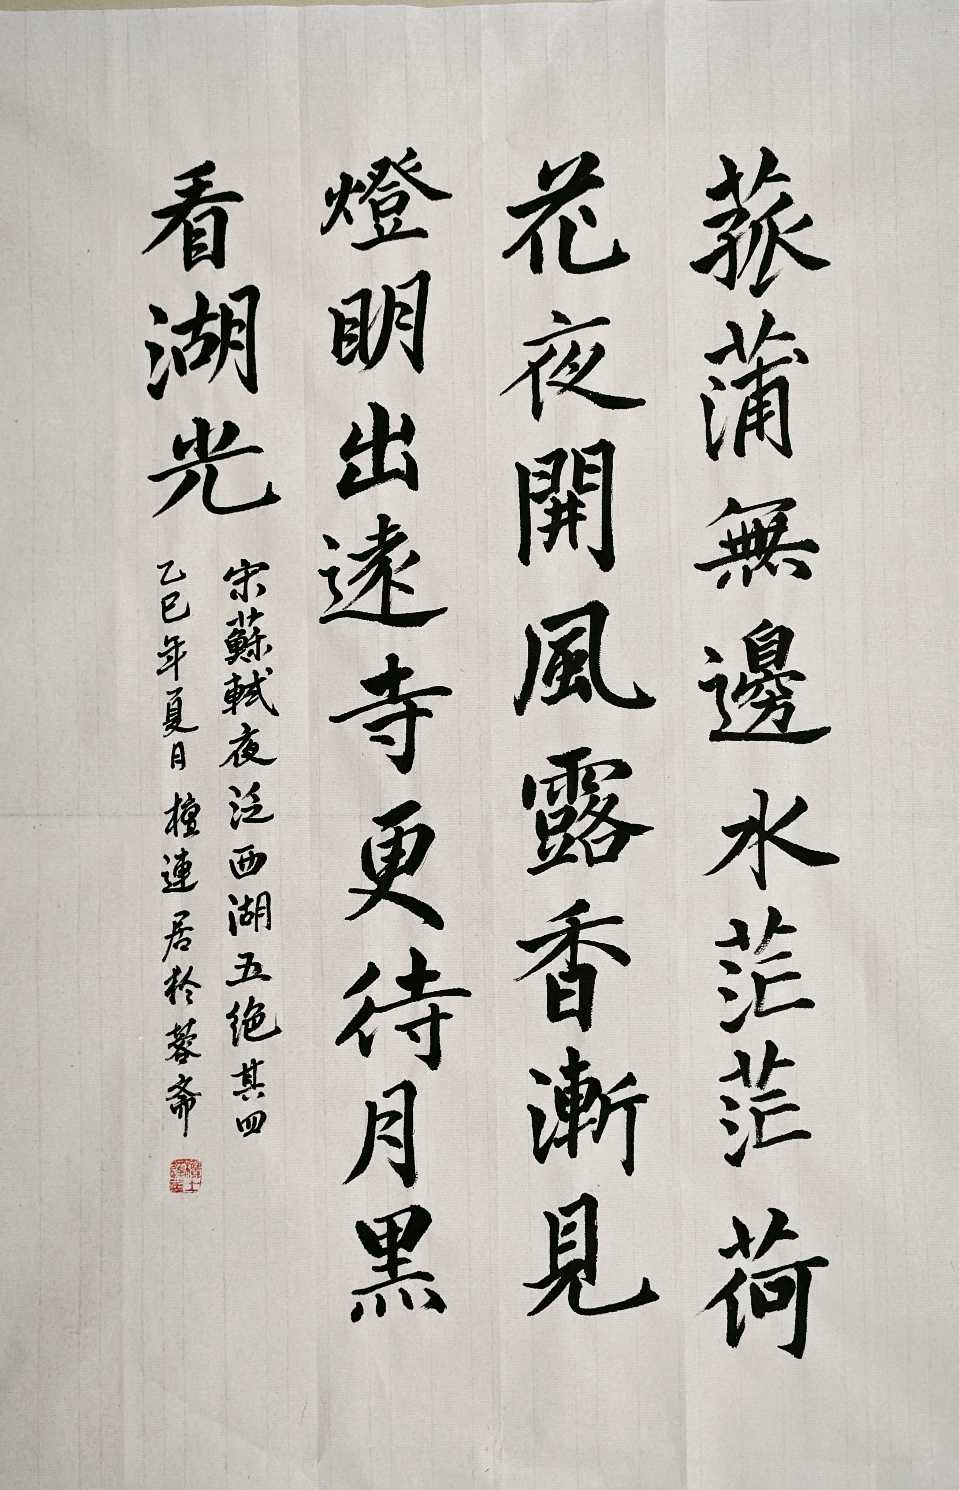 菰蒲無邊水茫茫荷
花夜開風露香漸見
燈明出遠寺更待月黑
看湖光
宋蘇軾夜泛西湖五绝其四
乙巳年夏月檀連居於蓉斋